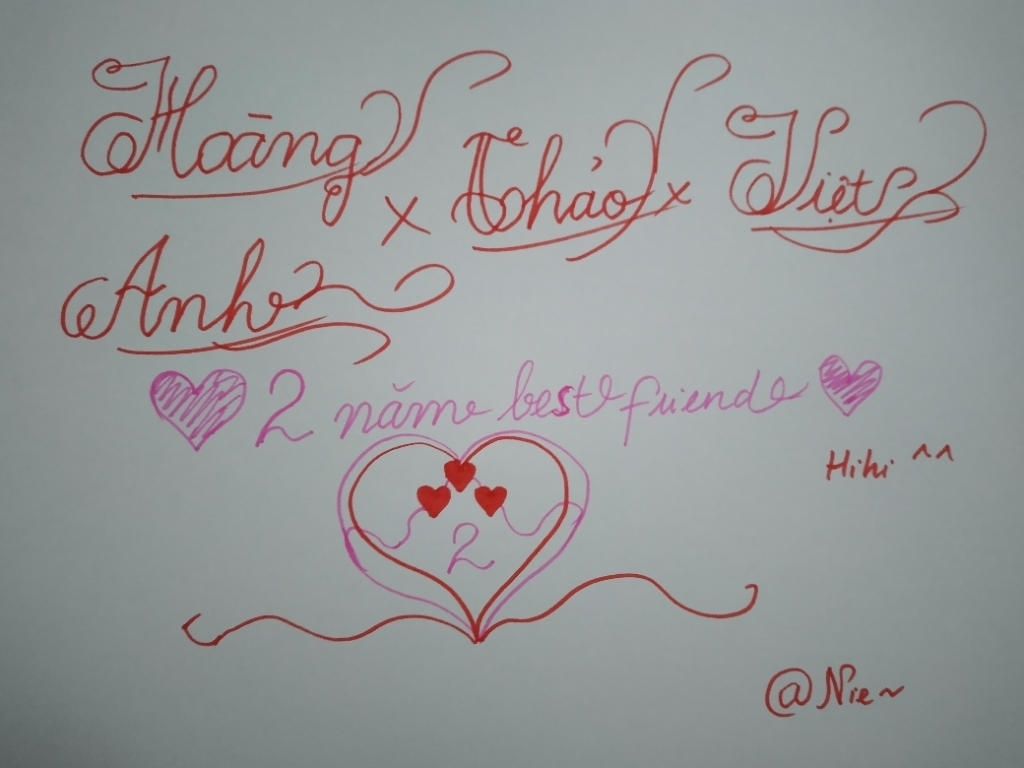 Hoàng x Thảo x Việt
Anh
2 năm best friend
Hihi ^^
2
@Nie~